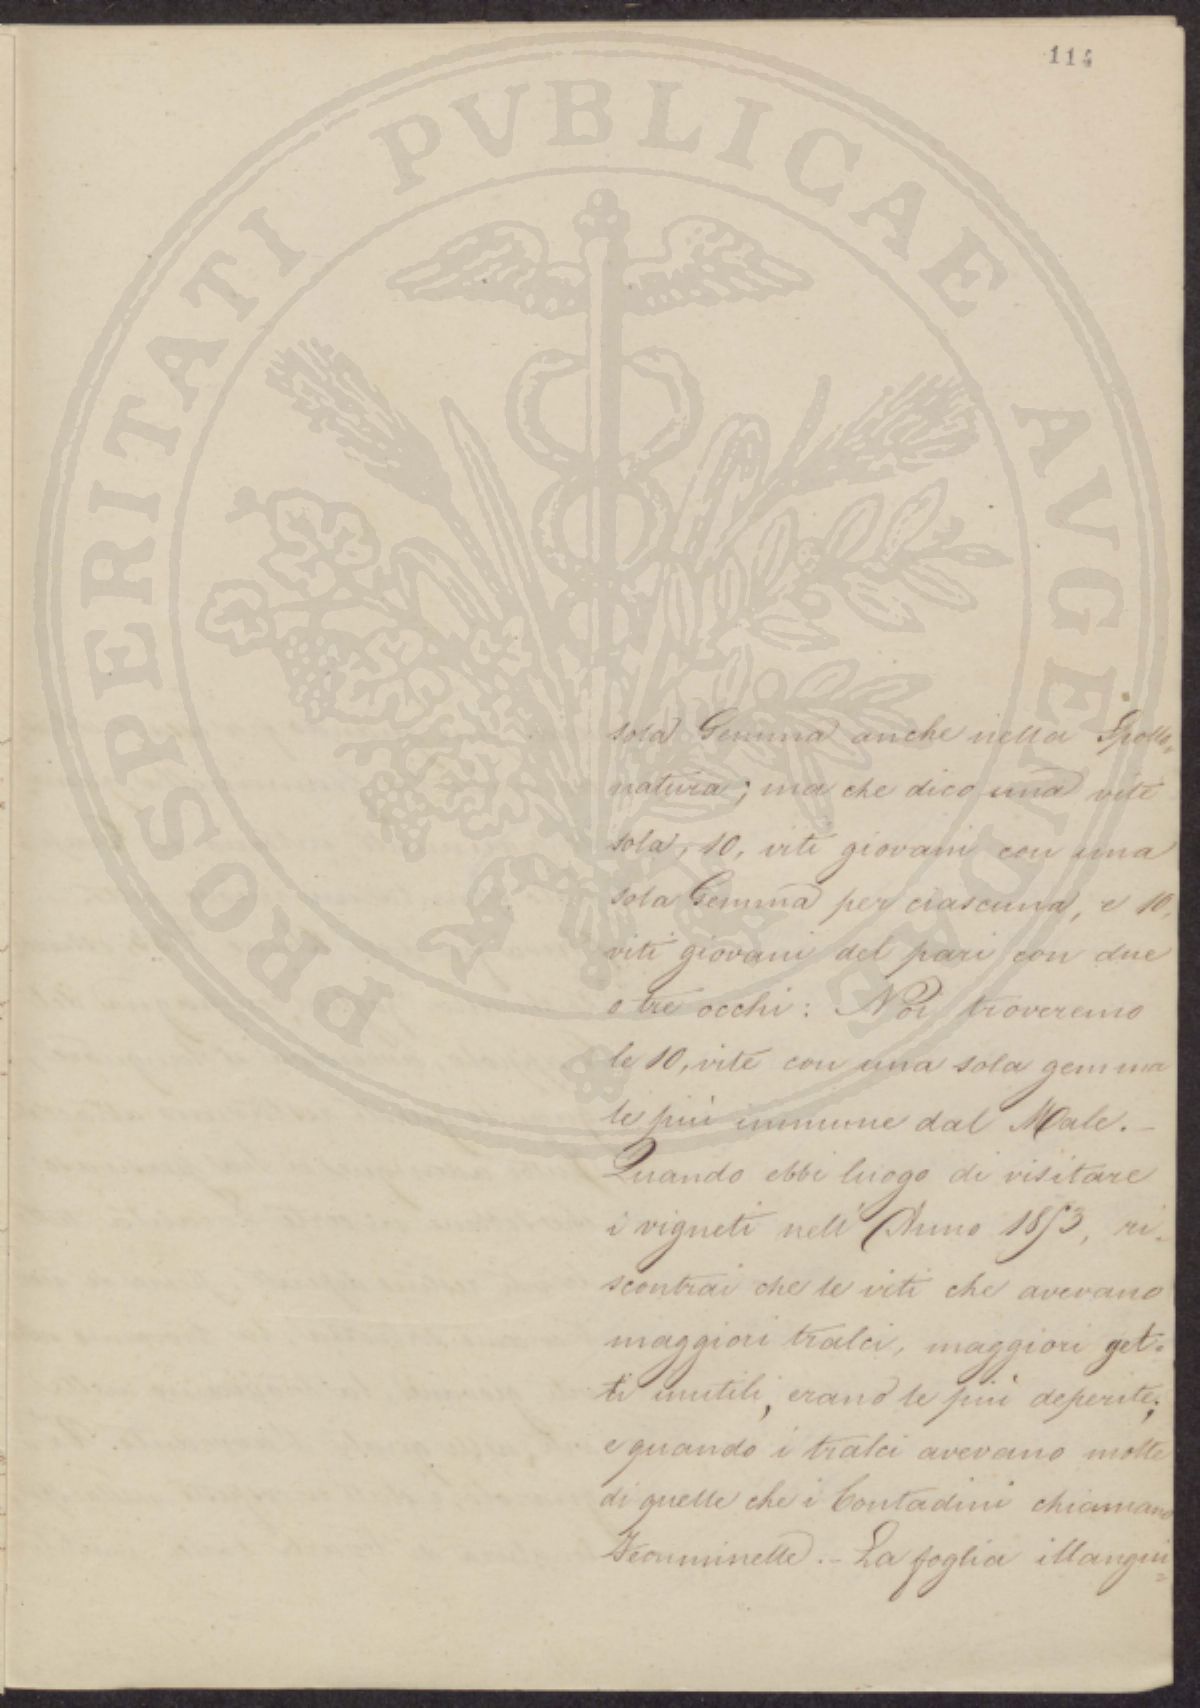 114
PROSPERITATI PVBLICAE AVGENDAE
sola Gemma anche nella Spollo=
natura; ma che dico una vite
sola, 10, viti giovani con una
sola Gemma per ciascuna, e 10,
viti giovani del pari con due
o tre occhi: Noi troveremo
le 10, vite con una sola gemma
le più immune dal Male. –
Quando ebbi luogo di visitare
i vigneti nell' Anno 1853, ri=
scontrai che le viti che avevano
maggiori tralci, maggiori get=
ti inutili, erano le più deperite;
e quando i tralci avevano molte
di quelle che i Contadini chiamano
Femminelle. – La foglia illangui=